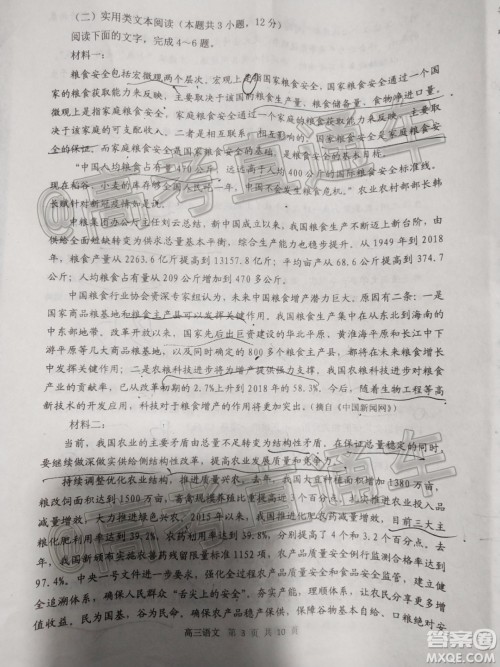 （二）实用类文本阅读（本题共3小题，12分）
阅读下面的文字，完成4～6题。
材料一：
粮食安全包括宏微观两个层次。宏观上是指国家粮食安全，国家粮食安全通过一个国
家的粮食获取能力来反映，主要取决于该国的粮食生产量、粮食储备量、食物净进口量。
微观上是指家庭粮食安全，家庭粮食安全通过一个家庭的粮食获取能力来反映，主要取决
于家庭的粮食购买力与收入。二者是相互联系的、相互影响的，国家粮食安全是家庭粮食安全
的保证，而家庭粮食安全是国家粮食安全的基础，是粮食安全的基本目标。
“中国人均粮食占有量470公斤，远远高于人均400公斤的国际粮食安全标准线，
现在稻谷、小麦的库存够全国人民吃一年，中国不会发生粮食危机。”农业农村部部长韩
长赋针对新冠疫情说。
中粮集团办公厅主任刘云总结，新中国成立以来，我国粮食生产不断迈上新台阶，由
供给全面短缺转变为供求总量基本平衡，综合生产能力也稳步提升，从1949年到2018
年，粮食产量从2263.6亿斤提高到13157.8亿斤；平均亩产从68.6公斤提高到374.7
公斤；人均粮食产量从209公斤增加到470多公斤。
中国粮食行业协会资深专家组认为，未来中国粮食增产潜力巨大，原因有二：一是国
家商品粮基地和粮食主产县可以发挥关键作用。我国粮食生产基地分布在从东北到海南的
中东部地带。改革开放以来，国家先后出巨资建设的华北平原、黄淮海平原和长江中下
游平原等几大商品粮基地，以及明确确定的800多个粮食主产县可以在未来粮食增产中
发挥关键作用；二是农业科技将为粮食增产提供强力支撑，我国农业科技进步贡献率农
产业的贡献率，已从改革初期的2.7%上升到2018年的58.3%。今后，随着生物工程等高
新技术的开发应用，科技对于粮食增产的作用将更加突出。（摘自《中国新闻网》）
材料二：
当前，我国农业的主要矛盾由总量不足转变为结构性矛盾，在保证总量稳定的同时，
要继续做深做实供给侧结构性改革，提高农业发展质量和竞争力。
持续调整优化农业结构，农业供给数量更加充足。去年，我国大豆种植面积增加1380万亩，
粮改饲面积达到1500万亩，畜禽规模养殖比重提高近3个百分点。扎实推进农业投入品
减量增效，大力推进绿色兴农。2015年以来，我国实施化肥农药减量增效，目前三大主
粮化肥利用率达到39.2%、农药利用率达到39.8%，分别提高了4个和3.2个百分点。去
年，我国新颁布实施农兽药残留限量标准1152项，农产品质量安全例行监测合格率达到
97.4%。中央一号文件提出，强化全过程农产品质量安全和食品安全监管，建立健全
追溯体系，确保人民群众“舌尖上的安全”。发展农产品生产是农业的根本任务，
国以民为本、谷为民命。确保农产品稳产保供、保障谷物基本自给、口粮绝对安全，
高三语文 第3页 共10页
高考直通车
答案圈
MXQE.COM